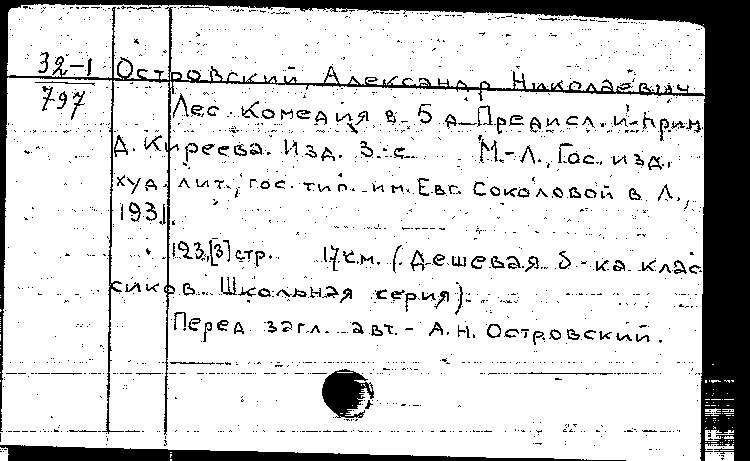 32-1 Островский, Александр Николаевич
797 Лес. Комедия в 5 д. Предисл. и прим
Д. Киреева. Изд. 3-е М.-Л., Гос. изд.
худ. лит., гос. тип. им. Евг. Соколовой в Л.,
1931.
123,[3] стр. 17 см. (Дешевая б-ка клас
сиков. Школьная серия).
Перед загл. авт.- А.Н. Островский.